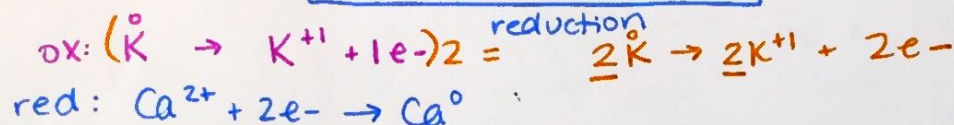 reduction
ox: (K⁰ → K⁺¹ + 1e-)2 = 2K⁰ → 2K⁺¹ + 2e-
red: Ca²⁺ + 2e- → Ca⁰